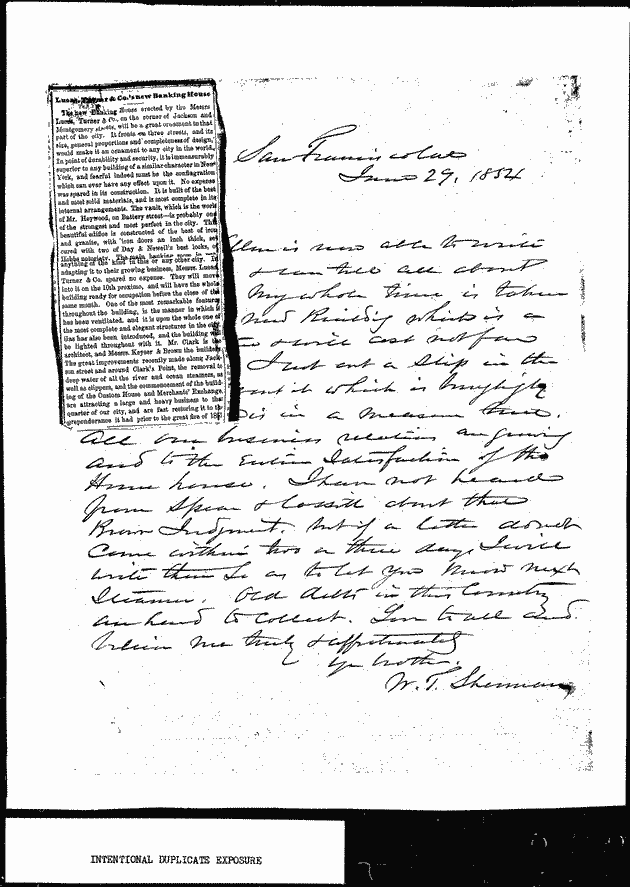 Lucas, Turner & Co.'s new Banking House
The new Banking House erected by the Messrs
Lucas, Turner & Co., on the corner of Jackson and
Montgomery streets, will be a great ornament to that
part of the city. It fronts on three streets, and its
size, general proportions and completeness of design,
would make it an ornament to any city in the world.
In point of durability and security, it is immeasurably
superior to any building of a similar character in New
York, and fearful indeed must be the conflagration
which can ever have any effect upon it. No expense
was spared in its construction. It is built of the best
and most solid materials, and is most complete in its
internal arrangements. The vault, which is the work
of Mr. Haywood, on Battery street—is probably one
of the strongest and most perfect in the city. This
beautiful edifice is constructed of the best of iron
and granite, with iron doors an inch thick, se-
cured with two of Day & Newell's best locks, of
Hobbs notoriety. The main banking room is
anything of the kind in this or any other city. In
adapting it to their growing business, Messrs. Lucas,
Turner & Co. spared no expense. They will move
into it on the 10th proximo, and will have the whole
building ready for occupation before the close of the
same month. One of the most remarkable features
throughout the building, is the manner in which it
has been ventilated, and it is upon the whole one of
the most complete and elegant structures in the city.
Gas has also been introduced, and the building will
be lighted throughout with it. Mr. Clark is the
architect, and Messrs. Keyser & Brown the builders.
The great improvements recently made along Jack-
son street and around Clark's Point, the removal to
deep water of all the river and ocean steamers, as
well as clippers, and the commencement of the build-
ing of the Custom House and Merchants' Exchange,
are attracting a large and heavy business to that
quarter of our city, and are fast restoring it to the
preponderance it had prior to the great fire of 185
San Francisco Cal
June 29, 1854
Ellen is now able to write
& can tell all about
My whole time is taken
new Building which is a
& will cost not far
I cut out a slip in the
about it which is
is in a measure true.
All our business relations are growing
and to the Entire Satisfaction of the
Home house. I have not heard
from Spear & about that
Brown Judgment, but if a letter does not
Come within two or three days I will
write them so as to let you know next
Steamer. Old debts in this Country
are hard to collect. Love to all and
believe me truly & affectionately
Yr brother.
W. T. Sherman
INTENTIONAL DUPLICATE EXPOSURE